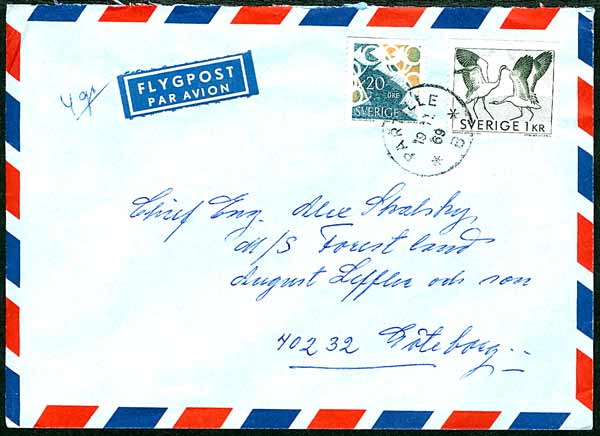 4 gr
FLYGPOST
PAR AVION
20
ÖRE
SVERIGE
SVERIGE 1 KR
PARTILLE
19 12
69
* B *
Chief Eng.
M/S Forestland
August Leffler och son
40232 Göteborg.